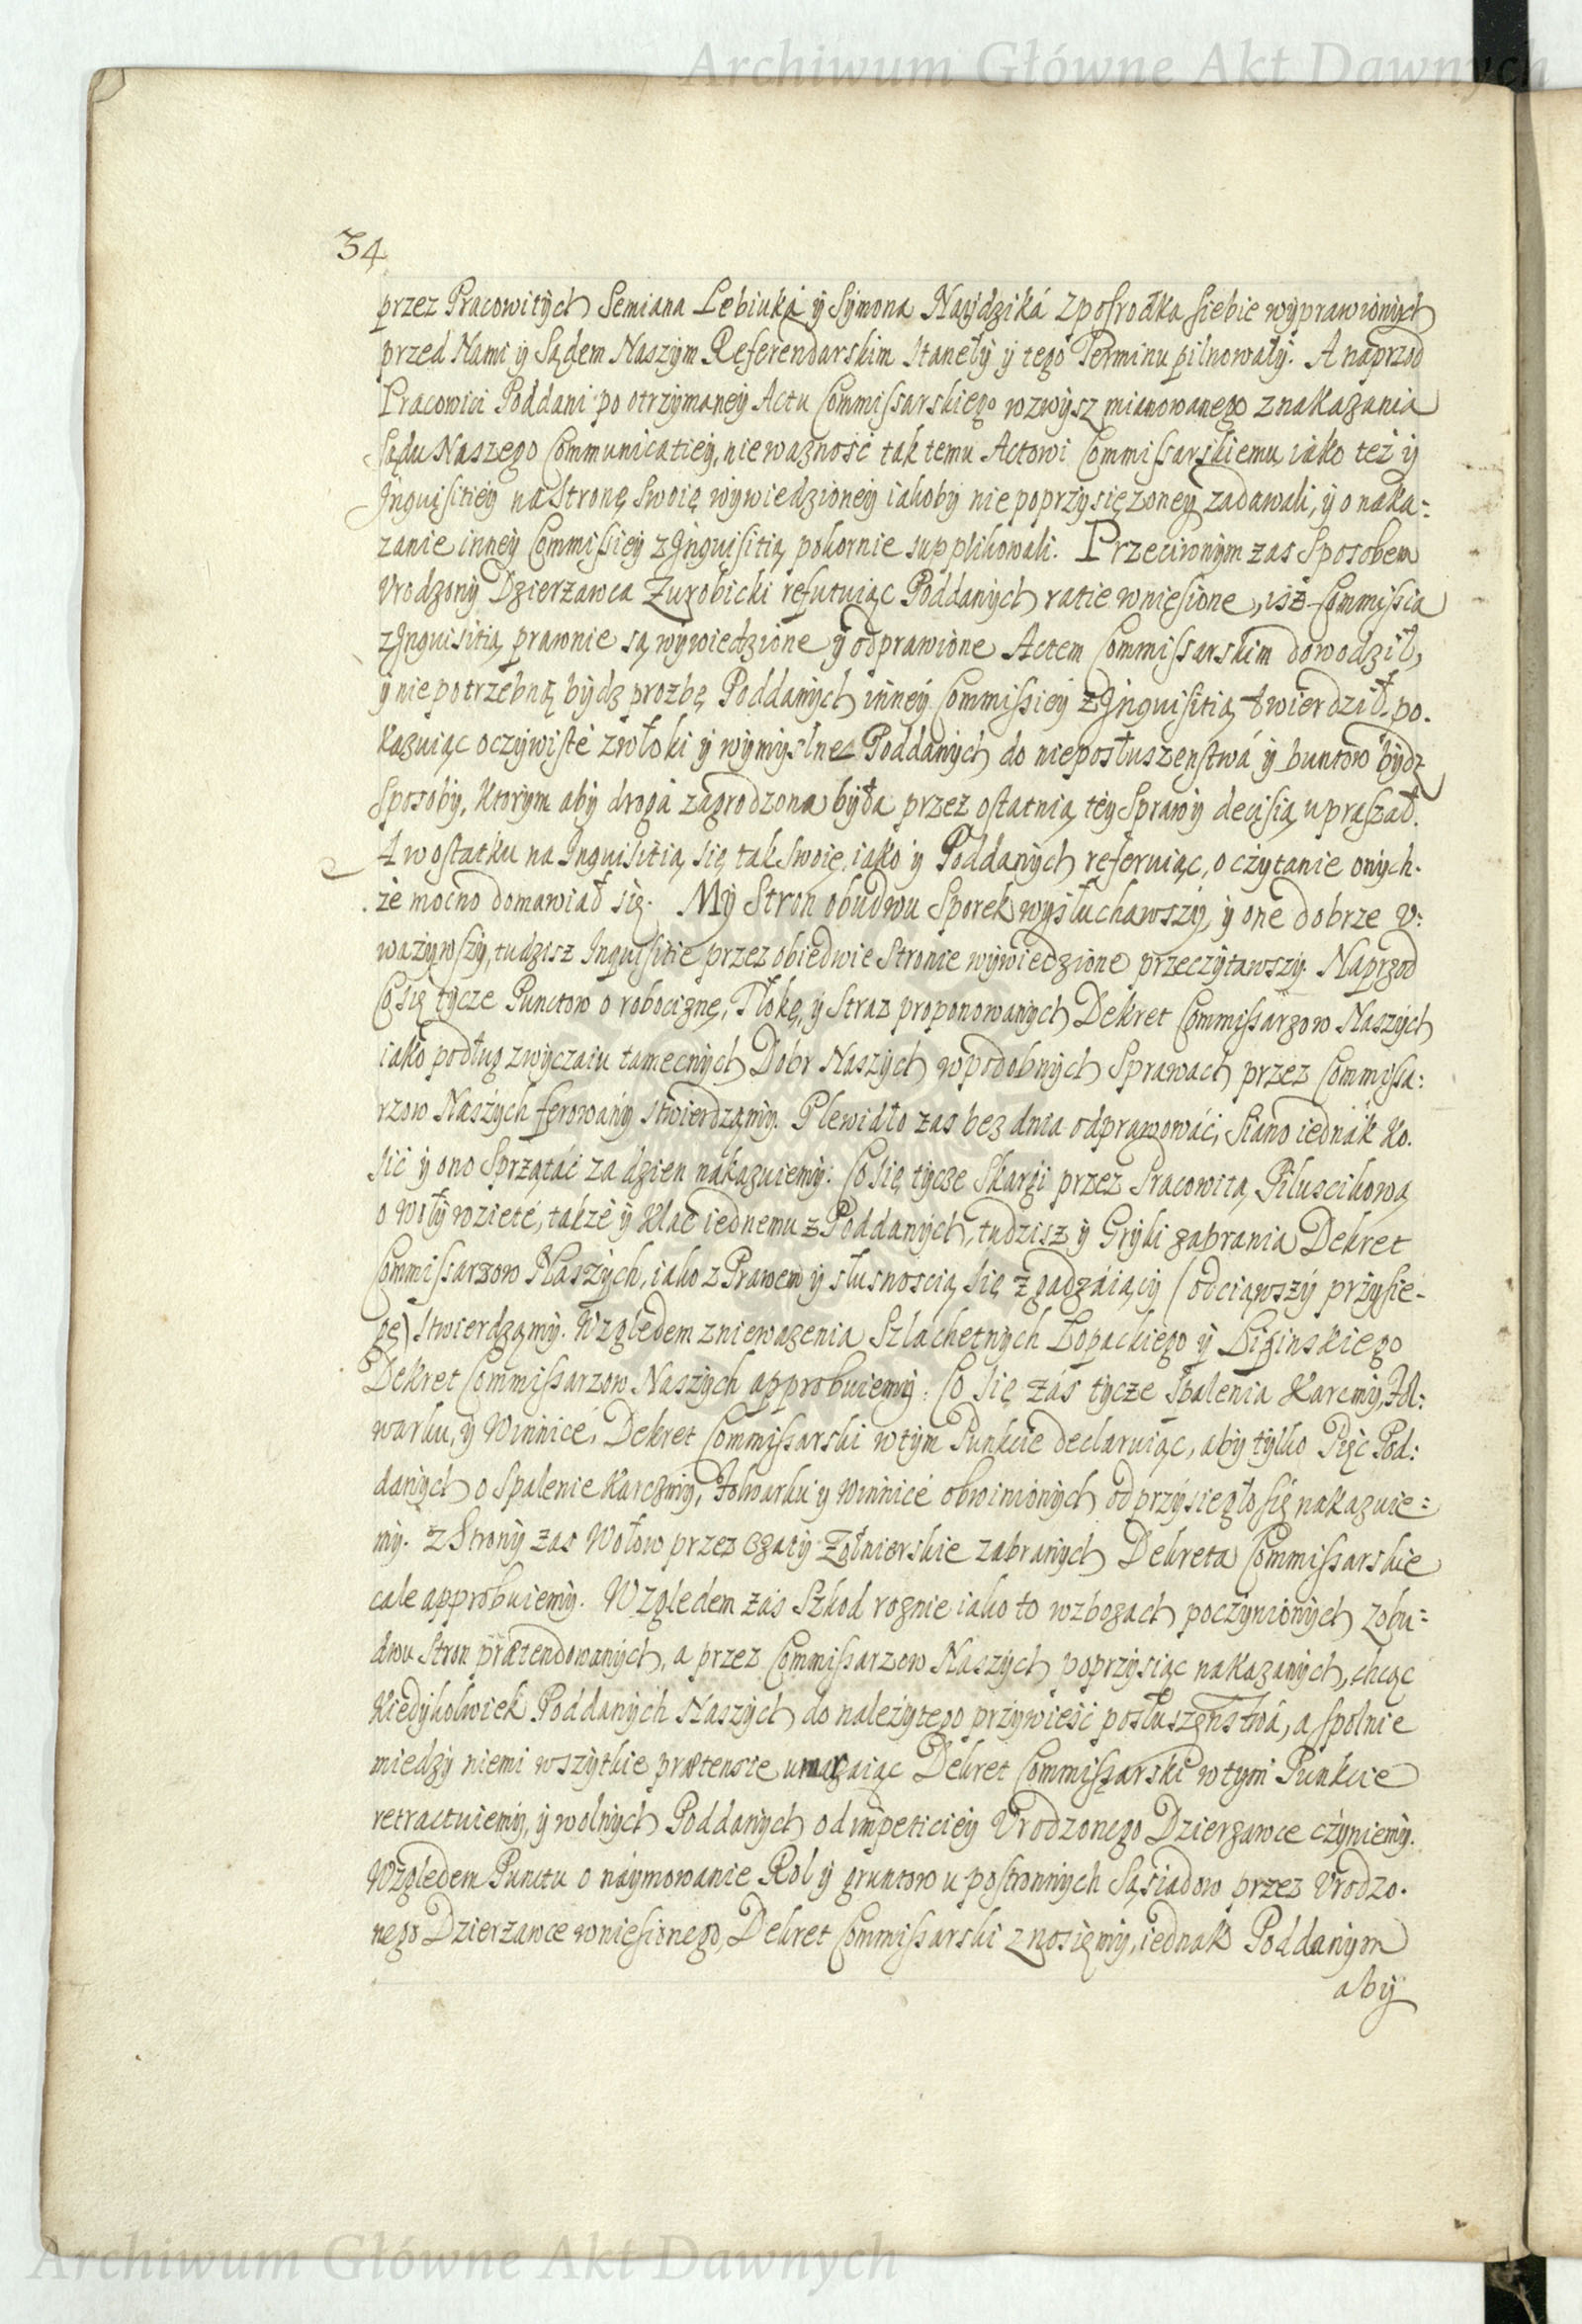 Archiwum Główne Akt Dawnych
34
przez Pracowitych Semiana Lebiuká ÿ Sÿmona Naÿdziká zposrodka siebie wÿprawionÿch
przed Nami ÿ Sądem Naszÿm Referendarskim Stanełÿ ÿ tego Terminu pilnowałÿ. A naprzod
Pracowici Poddani po otrzÿmaneÿ Actu Commissarskiego wzwÿsz mianowanego znakazania
Sądu Naszego Communicatieÿ, nieważność tak temu Actowi Commissarskiemu iako też ÿ
Inquisitieÿ na Stronę Swoię wÿwiedzioneÿ iakobÿ nie poprzÿsiężoneÿ zadawali, ÿ o naka:
zanie inneÿ Commissieÿ z Inquisitią pokornie supplikowali. Przeciwnÿm zas Sposobem
Vrodzonÿ Dzierżawca Zurobicki refutuiąc Poddanÿch ratie wniesione, isz Commissia
z Inquisitią prawnie są wÿwiedzione ÿ odprawione Actem Commissarskim dowodził,
ÿ niepotrzebną bÿdz prozbę Poddanÿch inneÿ Commissieÿ z Inquisitią twierdził, po.
kazuiąc oczÿwiste zwłoki ÿ wÿmÿslne Poddanÿch do nieposłuszenstwá ÿ buntow bÿdz
Sposobÿ, ktorÿm abÿ droga zagrodzona bÿła przez ostatnią teÿ Sprawÿ decisią upraszał.
A wostatku na Inquisitią się tak Swoię, iako ÿ Poddanÿch referuiąc, o czÿtanie onÿch.
że mocno domawiał się. Mÿ Stron obudwu Sporek wÿsłuchawszÿ, ÿ one dobrze v:
ważÿwszÿ, tudzisz Inquisitie przez obiedwie Stronie wÿwiedzione przeczÿtawszÿ. Naprzod
Co się tÿcze Punctow o robociznę, Tłokę, ÿ Straz proponowanÿch Dekret Commissarzow Naszÿch
iako podług zwÿczaiu tamecznÿch Dobr Naszÿch wpodobnÿch Sprawach przez Commissa:
rzow Naszÿch ferowanÿ stwierdzamÿ. Plewidło zas bez dnia odprawowáć, Siano iednák ko.
sić ÿ ono Sprzątáć za dzien nákazuiemÿ. Co się tÿcze Skargi przez Pracowitą Piluscikową
o Wołÿ wziete, także ÿ klacż iednemu z Poddanÿch, tudzisz ÿ Grÿki zabrania Dekret
Commissarzow Naszÿch, iako z Prawem ÿ słusnoscią się zgadzáiącÿ (odciąwszÿ przÿsie-
gę) Stwierdzamÿ. Względem zniewazenia Szlachetnÿch Lopackiego ÿ Biginskiego
Dekret Commissarzow Naszÿch approbuiemÿ. Co się zás tÿcze spalenia Karcmÿ, Fol:
warku, ÿ Winnice, Dekret Commissarski wtÿm Punkcie declaruiąc, abÿ tÿlko Pięć Pod:
danÿch o Spalenie Karczmÿ, Folwarku ÿ Winnice obwinionÿch odprzÿsiegło się nakazuie:
mÿ. z Stronÿ zas Wołow przez Czatÿ Zołnierskie zabranÿch Dekreta Commissarskie
cale approbuiemÿ. Względem zás Szkod roznie iako to wzbozach poczÿnionÿch zobu:
dwu Stron prætendowanÿch, a przez Commissarzow Naszÿch poprzÿsiąc nakazanÿch, chcąc
kiedÿkolwiek Poddanÿch Naszÿch do należÿtego przÿwieść posłuszęństwá, a spolnie
miedzÿ niemi wszÿtkie prætensie umarzaiąc Dekret Commissarski wtÿm Punkcie
retractuiemÿ, ÿ wolnÿch Poddanÿch od impeticieÿ Vrodzonego Dzierzawce czÿniemÿ.
Względem Punctu o náÿmowanie Rol ÿ gruntow u postronnÿch Sąsiadow przez Vrodzo.
nego Dzierżawce wniesionego, Dekret Commissarski znosięmÿ, iednak Poddanÿm
abÿ
Archiwum Główne Akt Dawnych